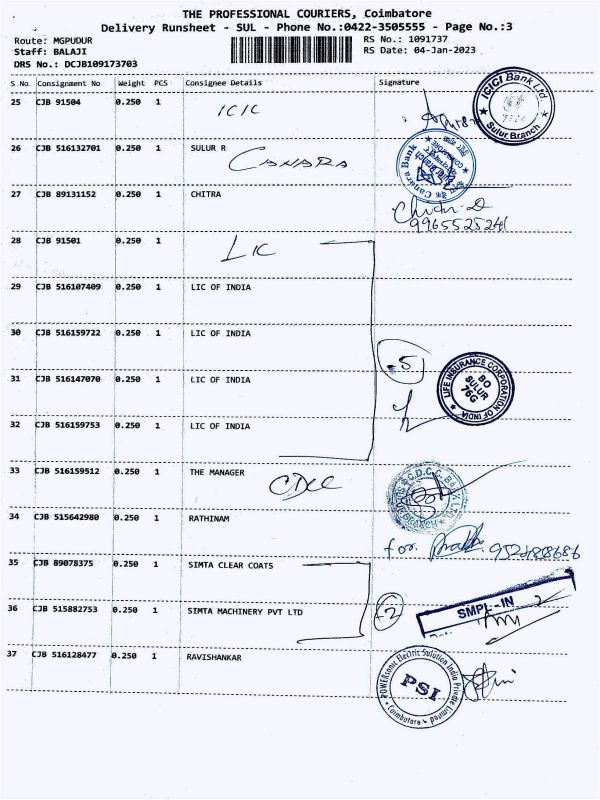 THE PROFESSIONAL COURIERS, Coimbatore
Delivery Runsheet - SUL - Phone No.:0422-3505555 - Page No.:3
Route: MGPUDUR
Staff: BALAJI
DRS No.: DCJB109173703
RS No.: 1091737
RS Date: 04-Jan-2023
S No. Consignment No Weight PCS Consignee Details Signature
25 CJB 91504 0.250 1 ICIC
ICICI Bank Ltd
Sulur Branch
26 CJB 516132701 0.250 1 SULUR R
CANARA
Canara Bank
27 CJB 89131152 0.250 1 CHITRA
9965525241
28 CJB 91501 0.250 1 LIC
29 CJB 516107409 0.250 1 LIC OF INDIA
30 CJB 516159722 0.250 1 LIC OF INDIA
31 CJB 516147070 0.250 1 LIC OF INDIA
32 CJB 516159753 0.250 1 LIC OF INDIA
5
LIFE INSURANCE CORPORATION OF INDIA
BO
SULUR
76G
33 CJB 516159512 0.250 1 THE MANAGER
CDCC
34 CJB 515642980 0.250 1 RATHINAM
for.
35 CJB 89078375 0.250 1 SIMTA CLEAR COATS
36 CJB 515882753 0.250 1 SIMTA MACHINERY PVT LTD
2
SMPL-IN
37 CJB 516128477 0.250 1 RAVISHANKAR
POWERsonic Electric Solution India Private Limited
* Coimbatore *
PSI